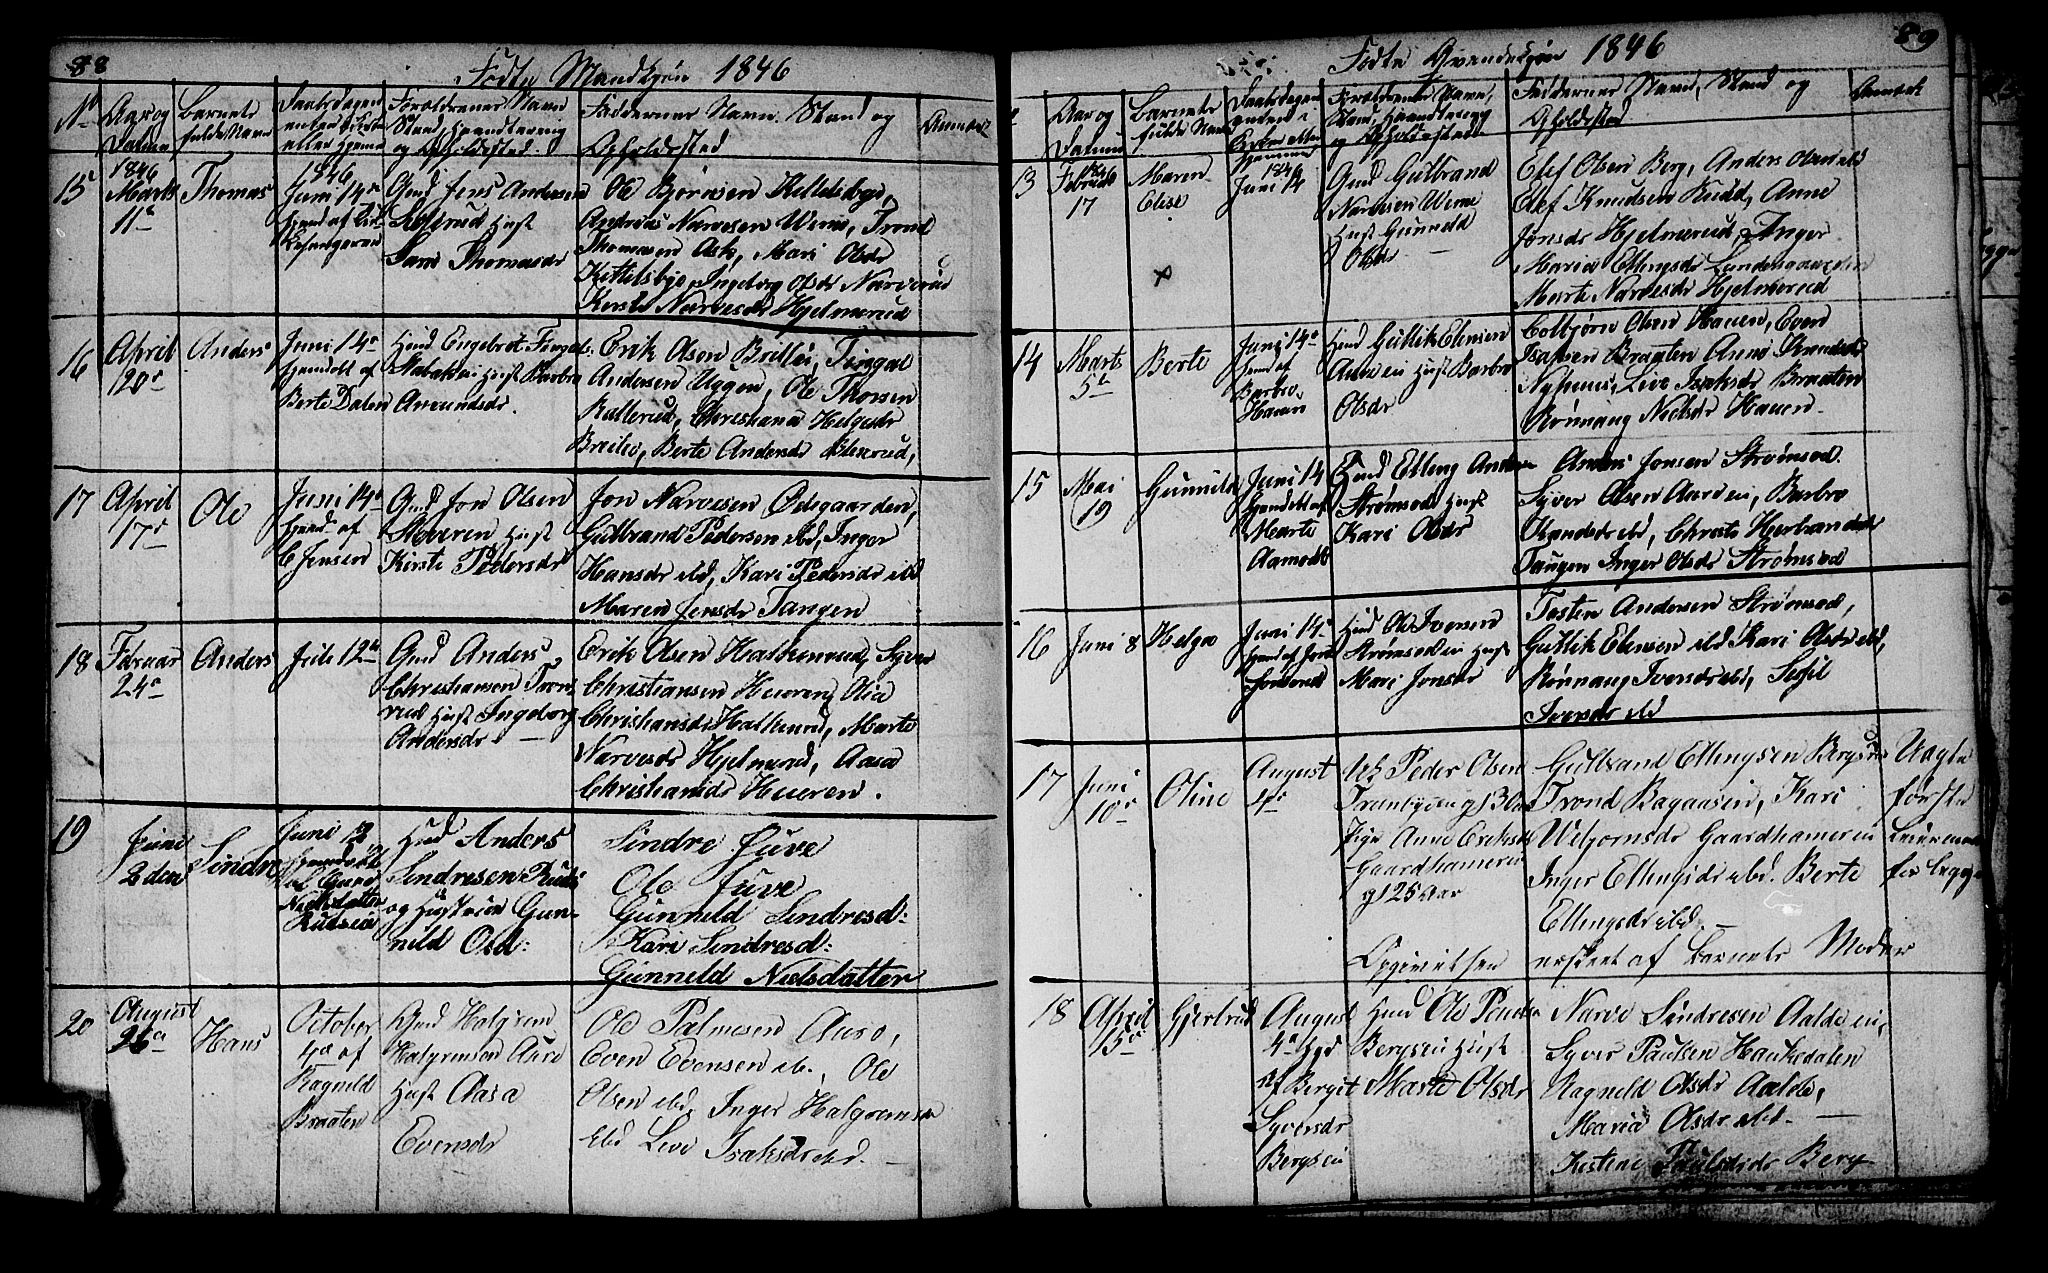 88
Fødte Mandkjøn 1846
No
Aar og
Datum
Barnets
fulde Navn
Daabsdagen
enten i Kirke
eller Hjemme
Forældrenes Navn
Stand, Haandtering
og Opholdssted.
Faddernes Navn. Stand og
Opholdssted
Anmærk
15
1846
Marts
11te
Thomas
1846
Juni 14de
Hjemd af
Gmd Jens Andersen
Hust
Sara Thomasdr
Ole Bjørnsen Kittelsbye,
Andreas Narvesen Werne, Trond
Thomassen Ask, Mari Olsdr
Kittelsbye, Ingeborg Olsdr Narverud
Kirsti Narvesdr Hjelmerud
16
April
20de
Anders
Juni 14de
hjemdbt af
Berte Dalen
Huusmd Engebret
Hust Barbro
Amundsdr.
Erik Olsen Breilei,
Andersen Uggen, Ole Thorsen
Rallerud, Christiana Helgesdr
Breilei, Berte Andersdr
17
April
17de
Ole
Juni 14de
Hjemd af
C Jensen
Gmd Jon Olsen
Hust
Kirsti Pedersdr
Jon Narvesen Ødegaarden,
Gulbrand Pedersen ibd, Inger
Hansdr ibd, Kari Pedersdr ibd
Maren Jensdr Tangen
18
Februar
24de
Anders
Juli 12te
Gmd Anders
Christiansen
Hust Ingeborg
Andersdr
Erik Olsen Halkinrud, Syver
Christiansen Hueren, Olia
Christiansdr Halkinrud, Marte
Narvesdr Hjelmerud, Aasa
Christiansdr Hueren.
19
Juni
2den
Sindre
Juni
Nielsdatter
Rudsei
Huusmd Anders
Sindresen Rudsei
og Hustrue Gun-
nild Olsd:
Sindre Juve
Ole Juve
Gunnild Sindresd:
Kari Sindresd:
Gunnild Nielsdatter
20
August
26de
Hans
October
af
Ragnild
Braaten
Gmd Halgrim
Halgrimsen Auro
Hust Aasa
Evensdr
Ole Palmesen Auro,
Even Evensen ib., Ole
Olsen ibd, Inger Halgrimsdr
ibd Live Isaksdr ibd.
89
Fødte Qvindekjøn 1846
Aar og
Datum
Barnets
fulde Navn
Daabsdagen
enten i
Kirke eller
Hjemme
Forældrenes Navn,
Stand, Haandtering
og Opholdssted
Faddernes Navn, Stand og
Opholdssted
Anmærk
13
1846
Februar
17
Maren
Elise
1846
Juni 14
Gmd Gulbrand
Narvesen Werne
Hust Gunneld
Olsdr
Elef Olsen Berg, Anders Olsen ibd
Elef Knudsen Rudd, Anne
Jonsdr Hjelmerud, Inger
Maria Ellingsdr Lundesgaarden
Marte Narvesdr Hjelmerud
14
Marts
5te
Berte
Juni 14de
hjemd af
Barbro
Hauen
Huusmd Gullik Elensen
Aurdei Hust Barbro
Olsdr
Colbjørn Olsen Hauen, Even
Isaksen Braaten Anne Knudsdr
Nyhuus, Live Isaksdr Braaten
Rønnaug Nielsdr Hauen
15
Mai
19
Gunnild
Juni 14
hjemdbt af
Marte
Aamodt
Gmd Elling Andersen
Strømsod Hust
Kari Olsdr
Anders Jonsen Strømsod.
Syver Olsen Aurdei, Barbro
ibd, Christi Herbrandsdr
Tangen Inger Olsdr Strømsod
16
Juni 8
Helga
Juni 14de
hjemd af
Huusmd Ole Iversen
Strømsodei Hust
Mari Jonsdr
Tosten Andersen Strømsod,
Gullik Elensen ibd Kari Olsdr ibd,
Rønnaug Iversdr ibd, Sessil
Iversdr ibd
17
Juni
10de
Oline
August
4de
Peder Olsen
Tranby
Pige Anne Eriksdr
Gaardhamerei
g 25 Aar
Opgivelsen
Gulbrand Ellingsen Bergsei
Trond Bagaasei, Kari
Wetjornsdr Gaardhamerei
Inger Ellingsdr ibd. Berte
Ellingsdr ibd.
af Barnets Moder
Uægte
første
Leiermaal
for begge
18
April
15de
Gjertrud
August
4de Hjd
af Bergit
Syversdr
Bergsei
Huusmd Ole
Bergsei Hust
Marte Olsdr
Narve Sindresen Aaldeei,
Syver Paulsen Haukedalen
Ragnild Olsdr Aalde,
Maria Olsdr ibd.
Kistine Paulsdr Berg